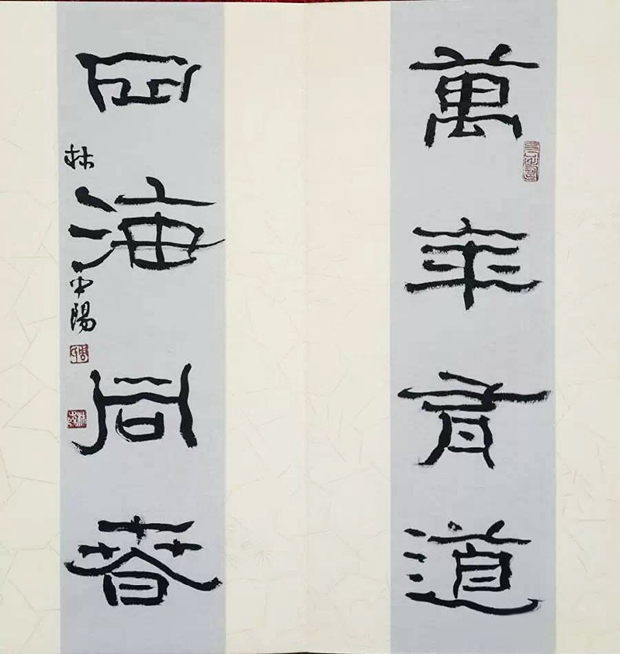 萬年有道
四海同春
林中陽